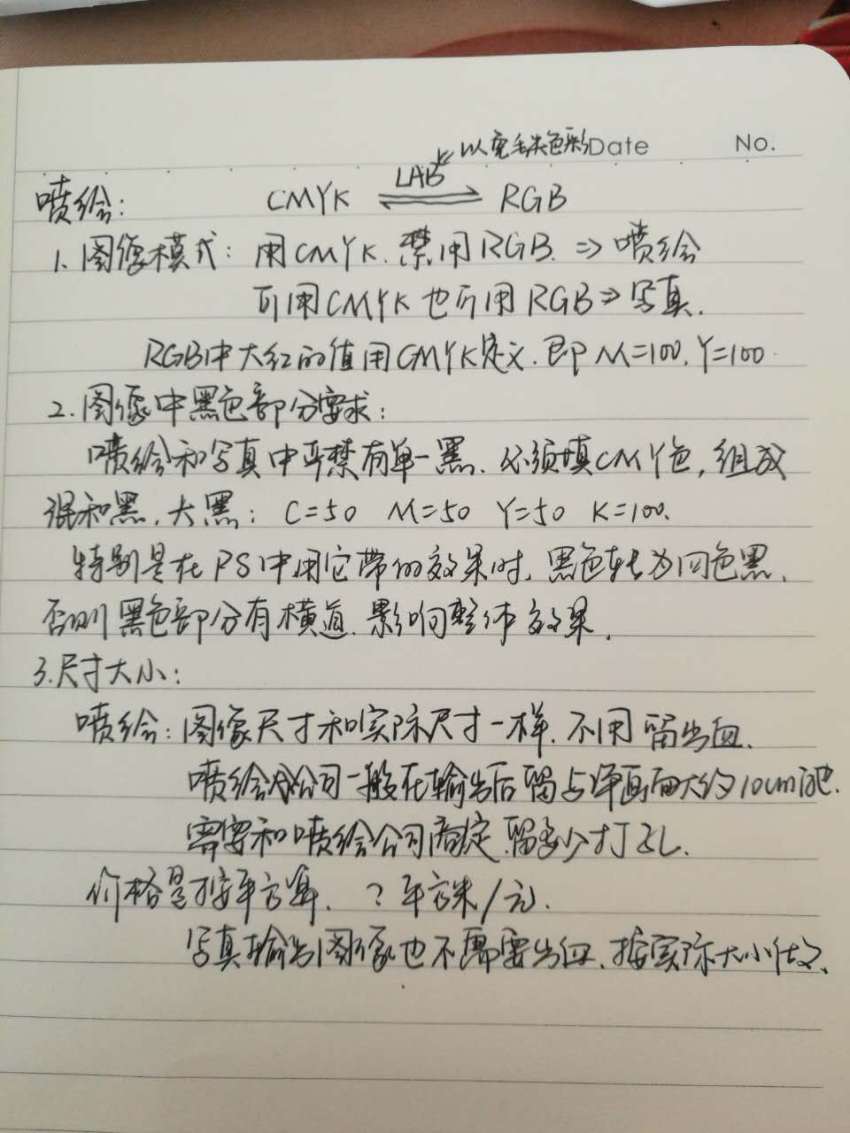 以免丢失色彩 Date No.
喷绘: CMYK LAB ⇌ RGB
1. 图像模式: 用CMYK. 禁用RGB. ⇒ 喷绘
可用CMYK也可用RGB ⇒ 写真.
RGB中大红的值用CMYK定义. 即 M=100. Y=100.
2. 图像中黑色部分要求:
喷绘和写真中严禁有单一黑. 必须填CMY色, 组成
混和黑. 大黑: C=50 M=50 Y=50 K=100.
特别是在PS中用它带的效果时. 黑色转为四色黑.
否则黑色部分有横道. 影响整体效果.
3. 尺寸大小:
喷绘: 图像尺寸和实际尺寸一样. 不用留出血.
喷绘公司一般在输出后留与净画面大约10cm白边.
需要和喷绘公司商定. 留多少打孔.
价格是按平方算. ? 平方米/元.
写真输出图像也不需要出血. 按实际大小做.